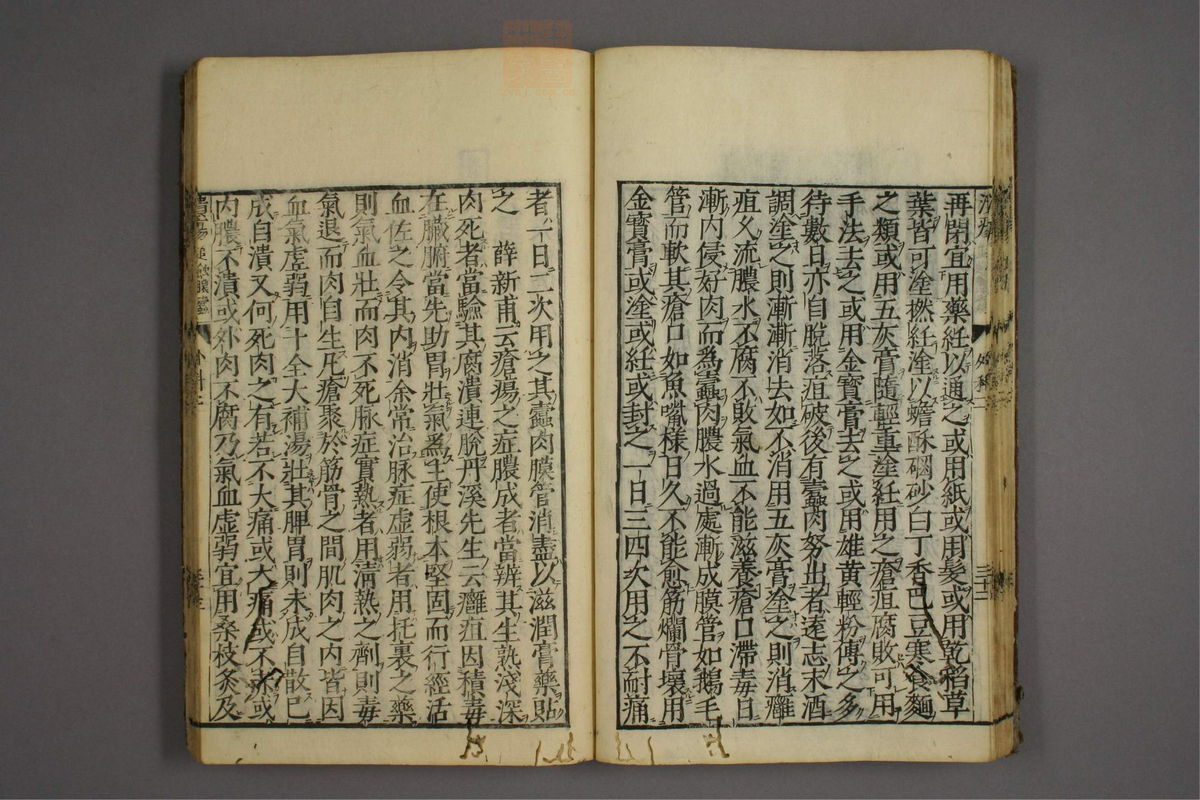 再閉宜用藥紝以通之或用紙或用髮或用乾稻草
葉皆可塗撚紝塗以蟾酥硇砂白丁香巴豆寒食麵
之類或用五灰膏隨輕重塗紝用之瘡疽腐敗可用
手法去之或用金寶膏去之或用雄黃輕粉傅之多
待數日亦自脫落疽破後有蠹肉努出者遠志末酒
調塗之則漸漸消去如不消用五灰膏塗之則消癰
疽久流膿水不腐不敗氣血不能滋養瘡口滯毒日
漸內侵好肉而為蠹肉膿水過處漸成膜管如鵝毛
管而軟其瘡口如魚嘴樣日久不能愈筋爛骨壞用
金寶膏或塗或紝或封之一日三四次用之不耐痛
者一日二次用之其蠹肉膜管消盡以滋潤膏藥貼
之　薛新甫云瘡瘍之症膿成者當辨其生熟淺深
肉死者當驗其腐潰連脫丹溪先生云癰疽因積毒
在臟腑當先助胃壯氣爲主使根本堅固而行經活
血佐之令其內消余常治脉症虛弱者用托裏之藥
則氣血壯而肉不死脉症實熱者用清熱之劑則毒
氣退而肉自生凡瘡聚於筋骨之間肌肉之內皆因
血氣虛弱用十全大補湯壯其脾胃則未成自散已
成自潰又何死肉之有若不大痛或大痛或不赤或
內膿不潰或外肉不腐乃氣血虛弱宜用桑枝灸及